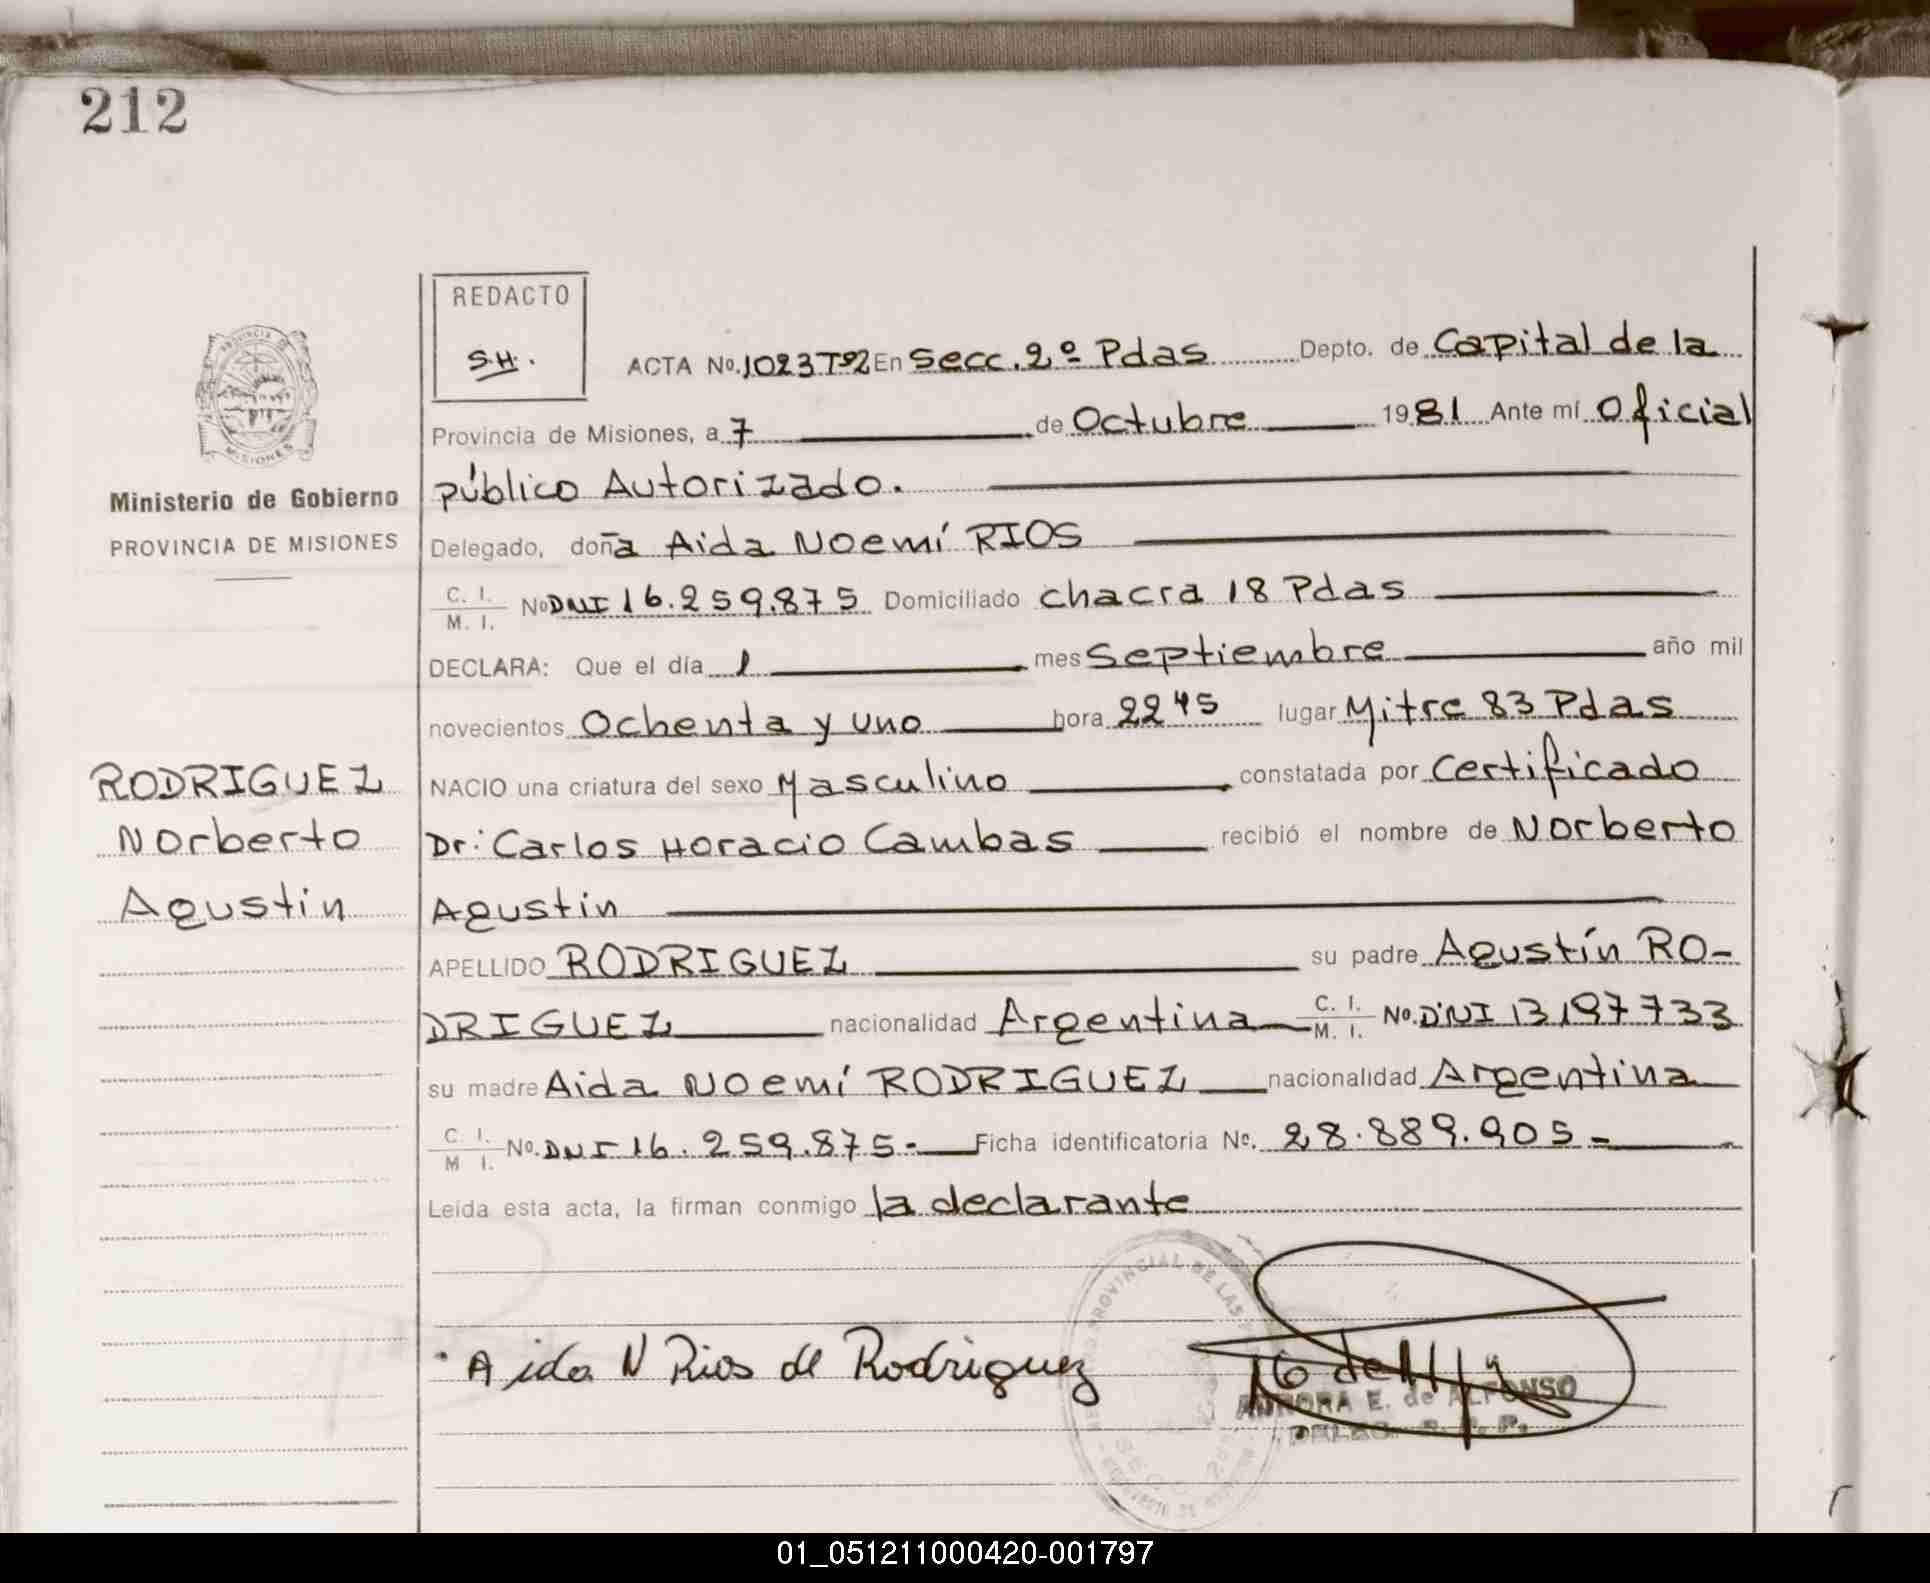 212
REDACTO
S.H.
ACTA No. 1023 Tº2 En Secc. 2º Pdas Depto. de Capital de la
Provincia de Misiones, a 7 de Octubre 1981 Ante mí Oficial
público Autorizado.
Delegado, doña Aida Noemí RIOS
C. I.
M. I. No DNI 16.259.875 Domiciliado chacra 18 Pdas
DECLARA: Que el día 1 mes Septiembre año mil
novecientos Ochenta y uno hora 22 45 lugar Mitre 83 Pdas
NACIO una criatura del sexo Masculino constatada por Certificado
Dr: Carlos Horacio Cambas recibió el nombre de Norberto
Agustin
APELLIDO RODRIGUEZ su padre Agustín RO-
DRIGUEZ nacionalidad Argentina C. I. M. I. No. DNI 13197733
su madre Aida Noemí RODRIGUEZ nacionalidad Argentina
C. I.
M I. No. DNI 16.259.875- Ficha identificatoria No. 28.889.905-
Leída esta acta, la firman conmigo la declarante
Aida N Rios de Rodriguez
AURORA E. de ALFONSO
PROVINCIA DE
MISIONES
Ministerio de Gobierno
PROVINCIA DE MISIONES
RODRIGUEZ
Norberto
Agustin
01_051211000420-001797